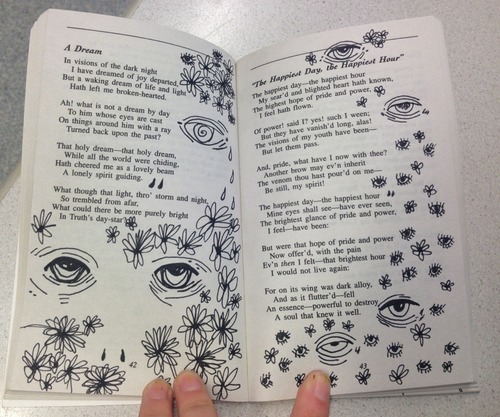 A Dream
In visions of the dark night
I have dreamed of joy departed,
But a waking dream of life and light
Hath left me broken-hearted.
Ah! what is not a dream by day
To him whose eyes are cast
On things around him with a ray
Turned back upon the past?
That holy dream—that holy dream,
While all the world were chiding,
Hath cheered me as a lovely beam
A lonely spirit guiding.
What though that light, thro' storm and night,
So trembled from afar,
What could there be more purely bright
In Truth's day-star?
42
"The Happiest Day, the Happiest Hour"
The happiest day—the happiest hour
My sear'd and blighted heart hath known,
The highest hope of pride and power,
I feel hath flown.
Of power! said I? yes! such I ween;
But they have vanish'd long, alas!
The visions of my youth have been—
But let them pass.
And, pride, what have I now with thee?
Another brow may ev'n inherit
The venom thou hast pour'd on me—
Be still, my spirit!
The happiest day—the happiest hour
Mine eyes shall see—have ever seen,
The brightest glance of pride and power,
I feel—have been:
But were that hope of pride and power
Now offer'd, with the pain
Ev'n then I felt—that brightest hour
I would not live again:
For on its wing was dark alloy,
And as it flutter'd—fell
An essence—powerful to destroy
A soul that knew it well.
43